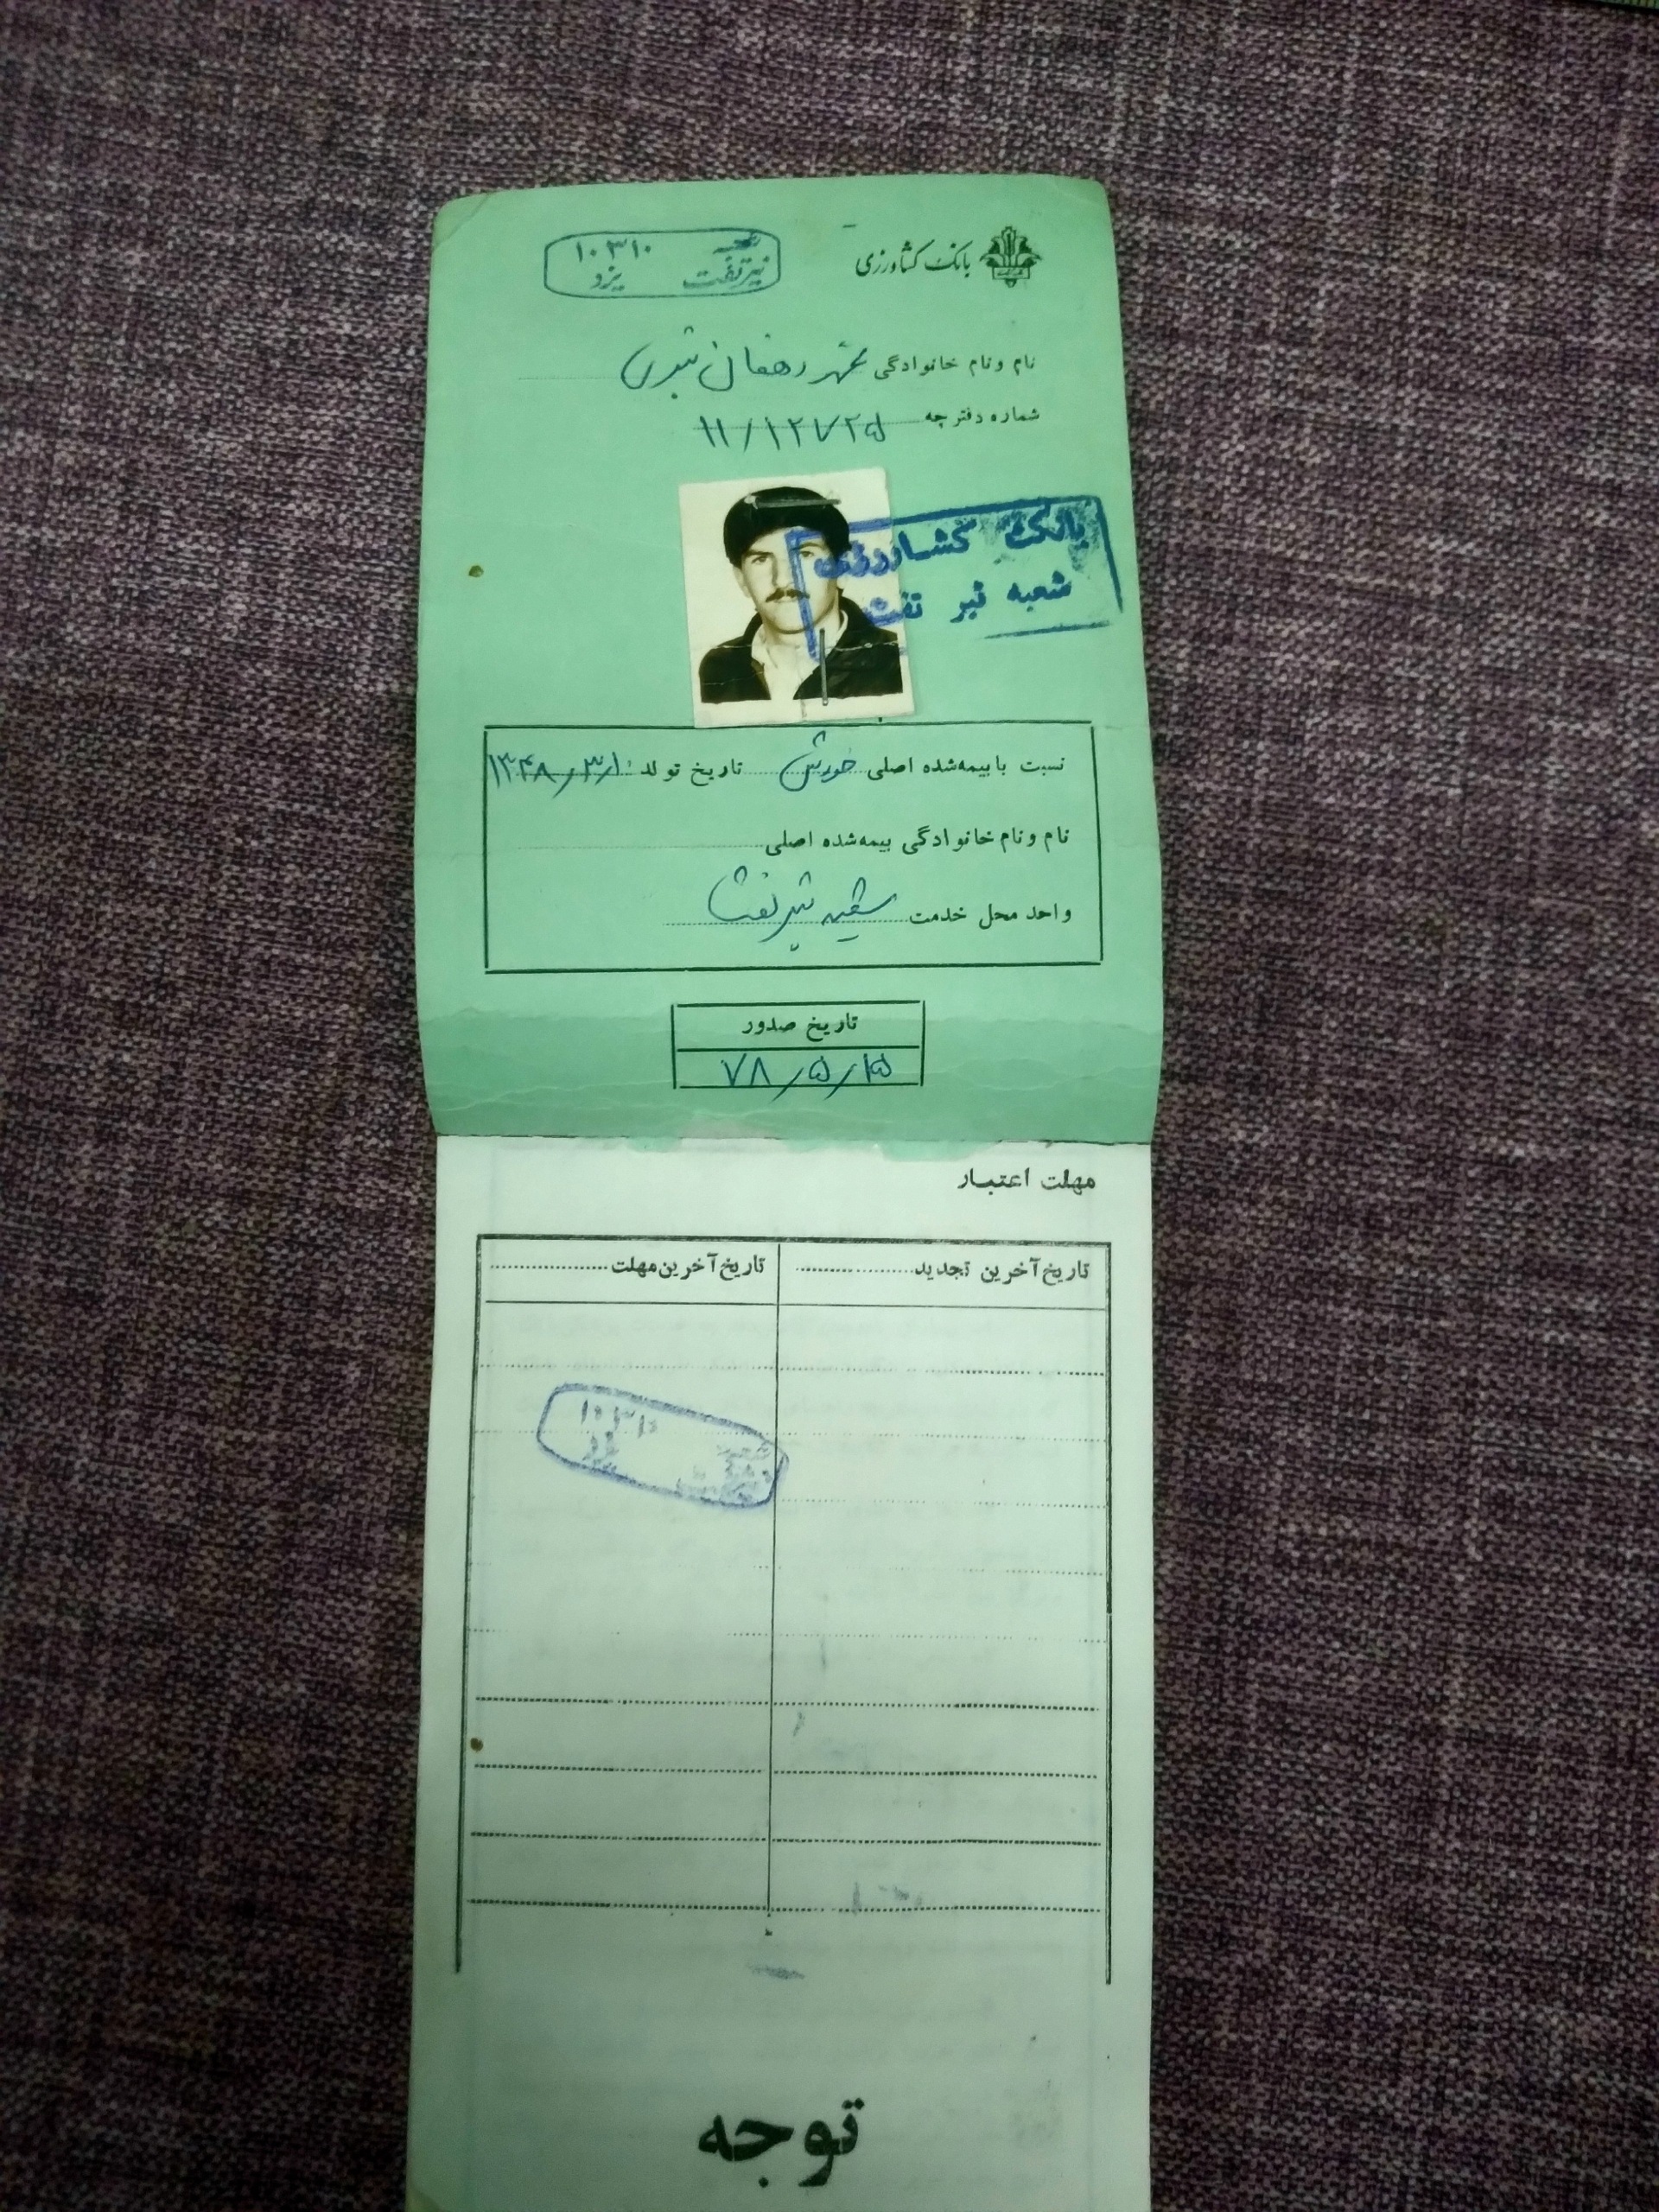 بانک کشاورزی
شعبه ۱۰۳۱۰
نیر تفت یزد
نام و نام خانوادگی دهقان نیری
شماره دفترچه ۱۱/۱۲۷۲۵
بانک کشاورزی
شعبه نیر تفت
نسبت با بیمه‌شده اصلی خودش تاریخ تولد ۱۳۴۸/۳/۱۰
نام و نام خانوادگی بیمه‌شده اصلی
واحد محل خدمت شعبه نیر تفت
تاریخ صدور
۷۸/۵/۱۵
مهلت اعتبار
تاریخ آخرین تجدید تاریخ آخرین مهلت
شعبه ۱۰۳۱۰
یزد
توجه